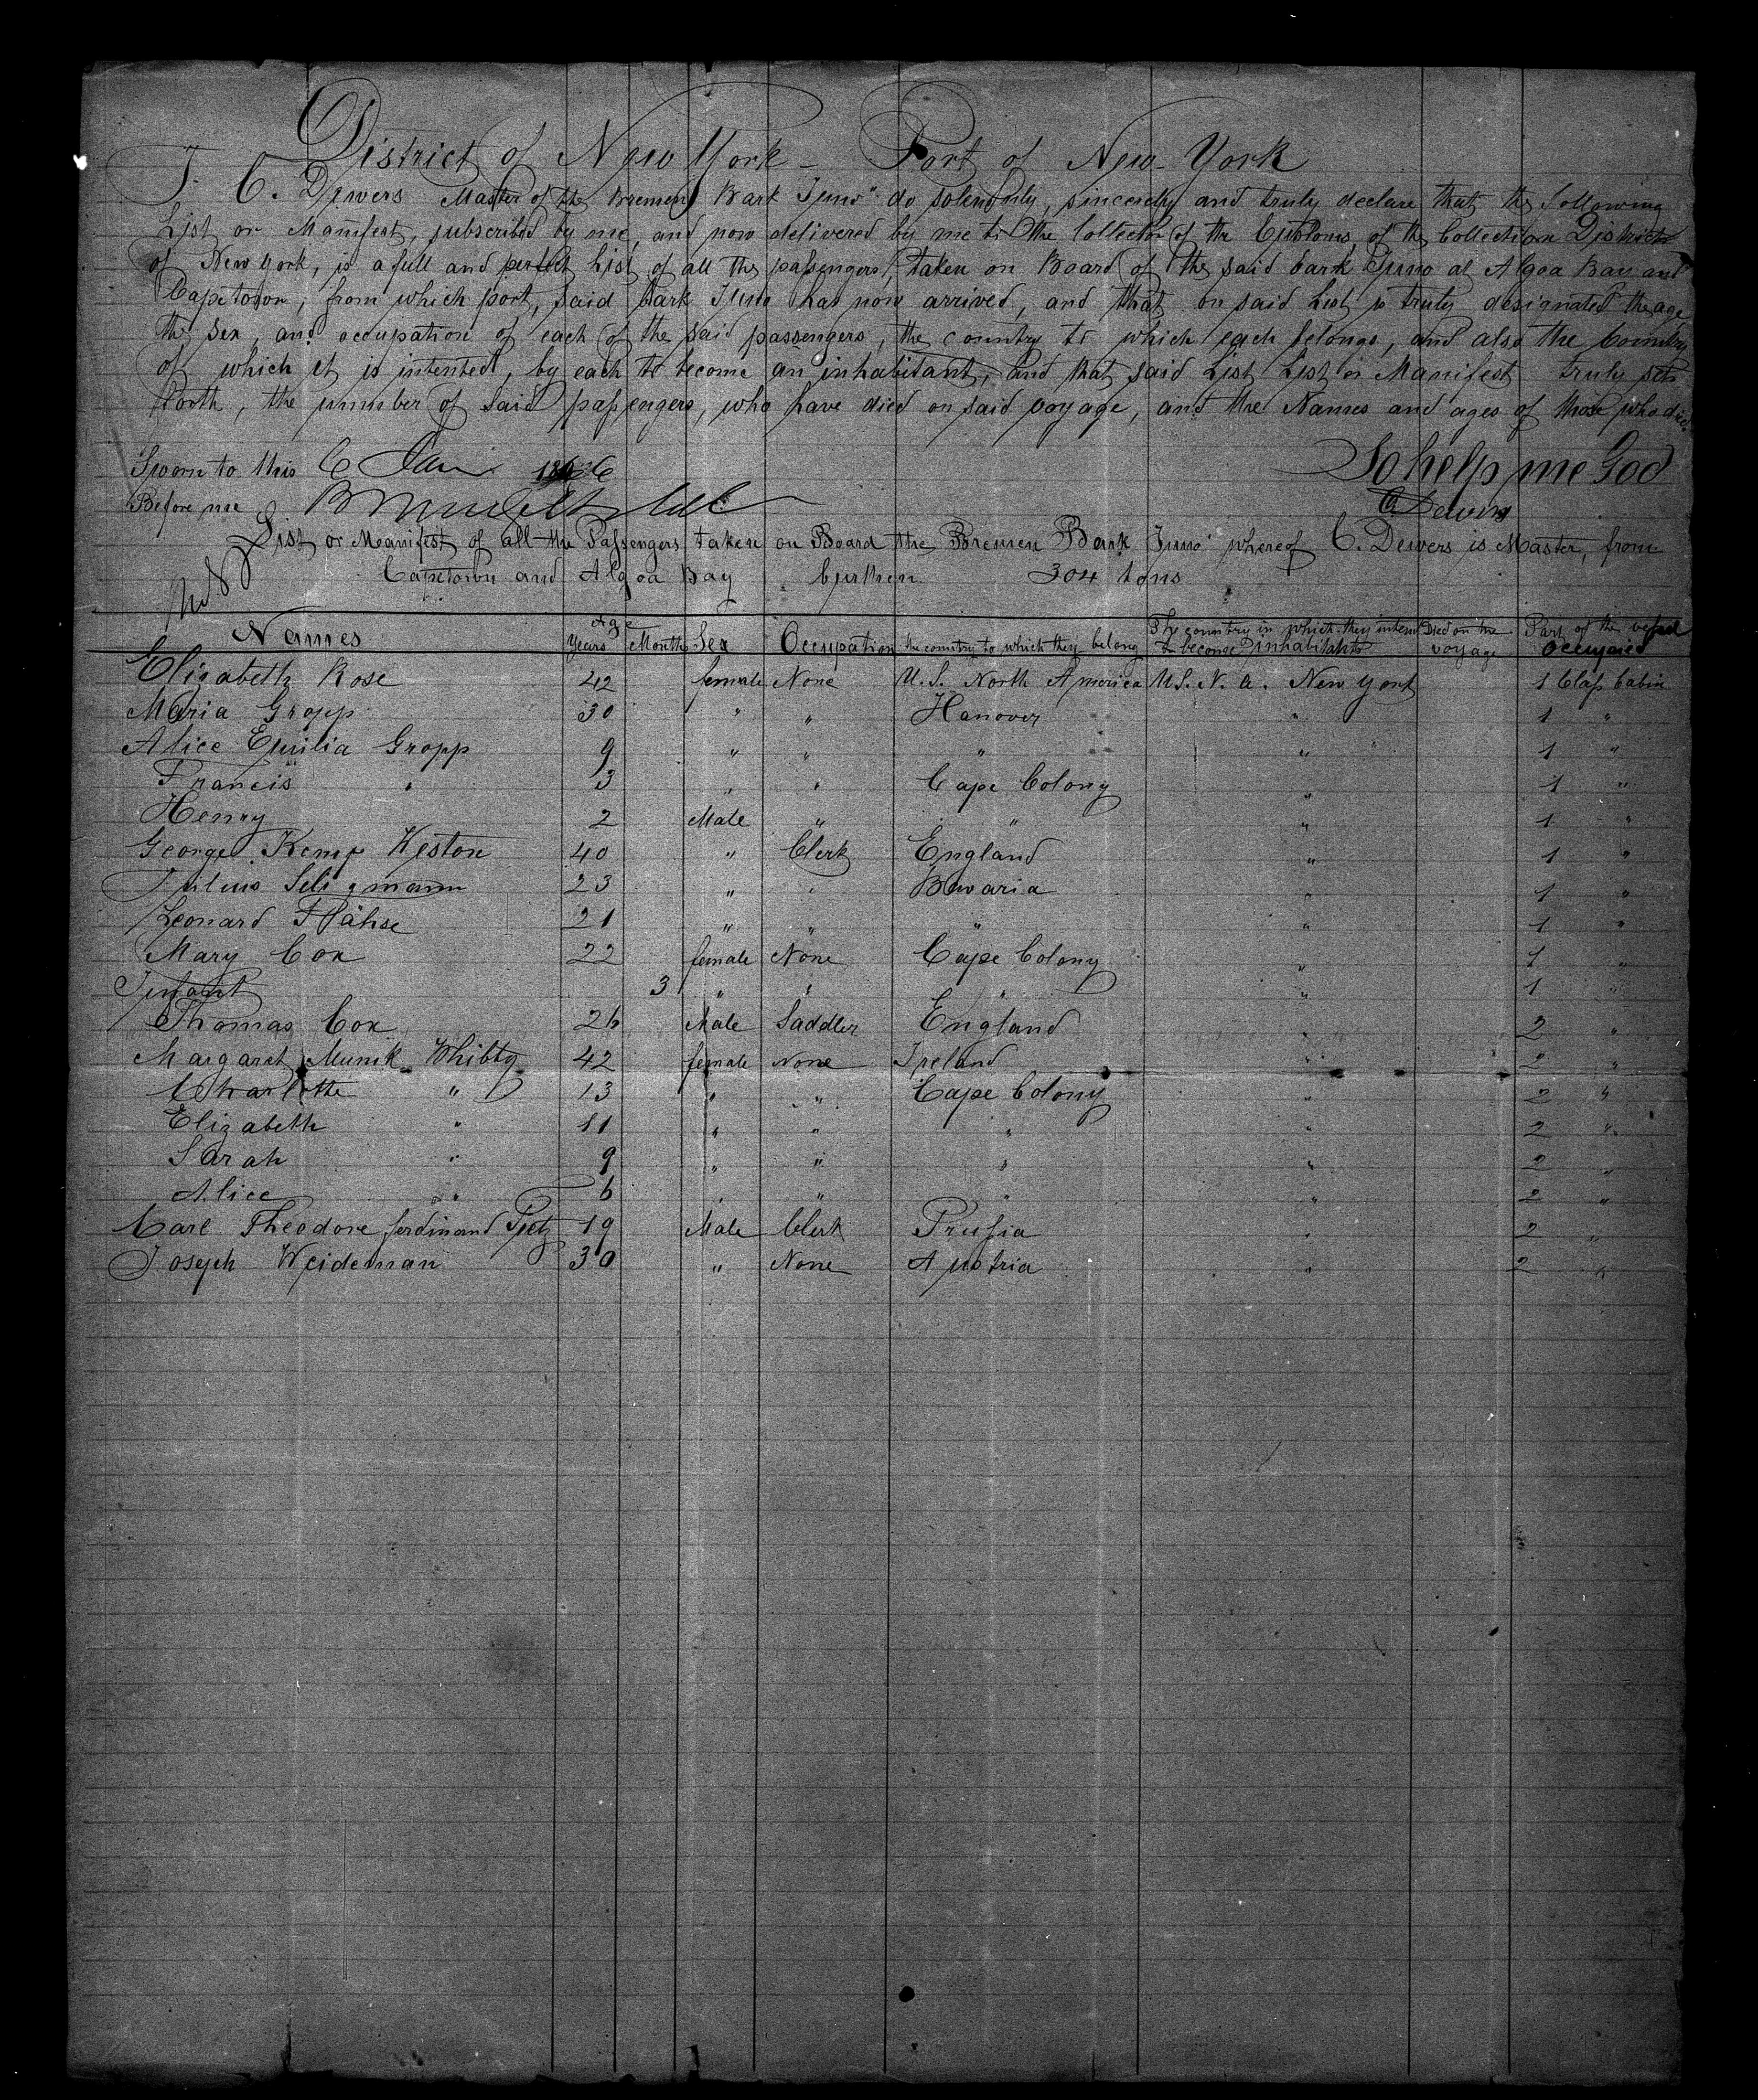 District of New York - Port of New York
I. C. Dewers Master of the Bremen Bark Juno" do solemnly, sincerely and truly declare that the following
List or Manifest, subscribed by me, and now delivered by me to the Collector of the Customs, of the Collection District
of New York, is a full and perfect List of all the passengers, taken on Board of the said bark Juno at Algoa Bay and
Capetown, from which port, said bark Juno has now arrived, and that on said List is truly designated the age
the sex, and occupation of each of the said passengers, the country to which each belongs, and also the Country
of which it is intented, by each to become an inhabitant, and that said List List or Manifest truly sets
forth, the number of said passengers, who have died on said voyage, and the Names and ages of those who died
Sworn to this 6 Jan 1866 So help me God
Before me C Dewers
List or Manifest of all the Passengers taken on Board the Bremen Bark Juno" whereof C. Dewers is Master, from
Capetown and Algoa Bay burthen 304 tons
Names Age Years Months Sex Occupation the country to which they belong The country in which they intend to become inhabitants Died on the voyage Part of the vessel occupied
Elizabeth Rose 42 female None U.S. North America U.S.N.a. New York 1 Class Cabin
Maria Gropp 30 " " Hanover " 1 "
Alice Emilia Gropp 9 " " " " " 1 "
Francis " 3 " " Cape Colony " 1 "
Henry 2 Male " " " 1 "
George Kemp Keston 40 " Clerk England " 1 "
Julius Seligmann 23 " " Bavaria " 1 "
Leonard Flähse 21 " " " " 1 "
Mary Cox 22 female None Cape Colony " 1 "
Infant 3 " " " " 1 "
Thomas Cox 26 Male Saddler England " 2 "
Margaret Munik Whibty 42 female None Ireland " 2 "
Charlotte " 13 " " Cape Colony " 2 "
Elizabeth " 11 " " " " 2 "
Sarah " 9 " " " " 2 "
Alice " 6 " " " " 2 "
Carl Theodore ferdinand 19 Male Clerk Prussia " 2 "
Joseph Weideman 30 " None Austria " 2 "